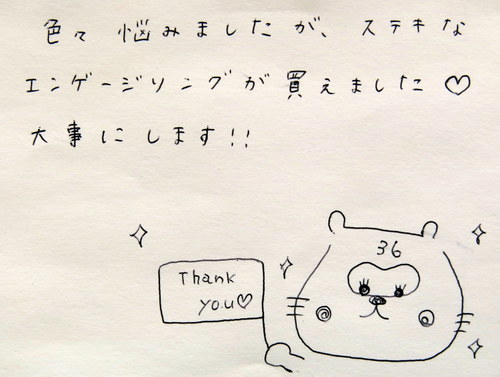 色々悩みましたが、ステキな
エンゲージリングが買えました♡
大事にします!!
36
Thank
you♡